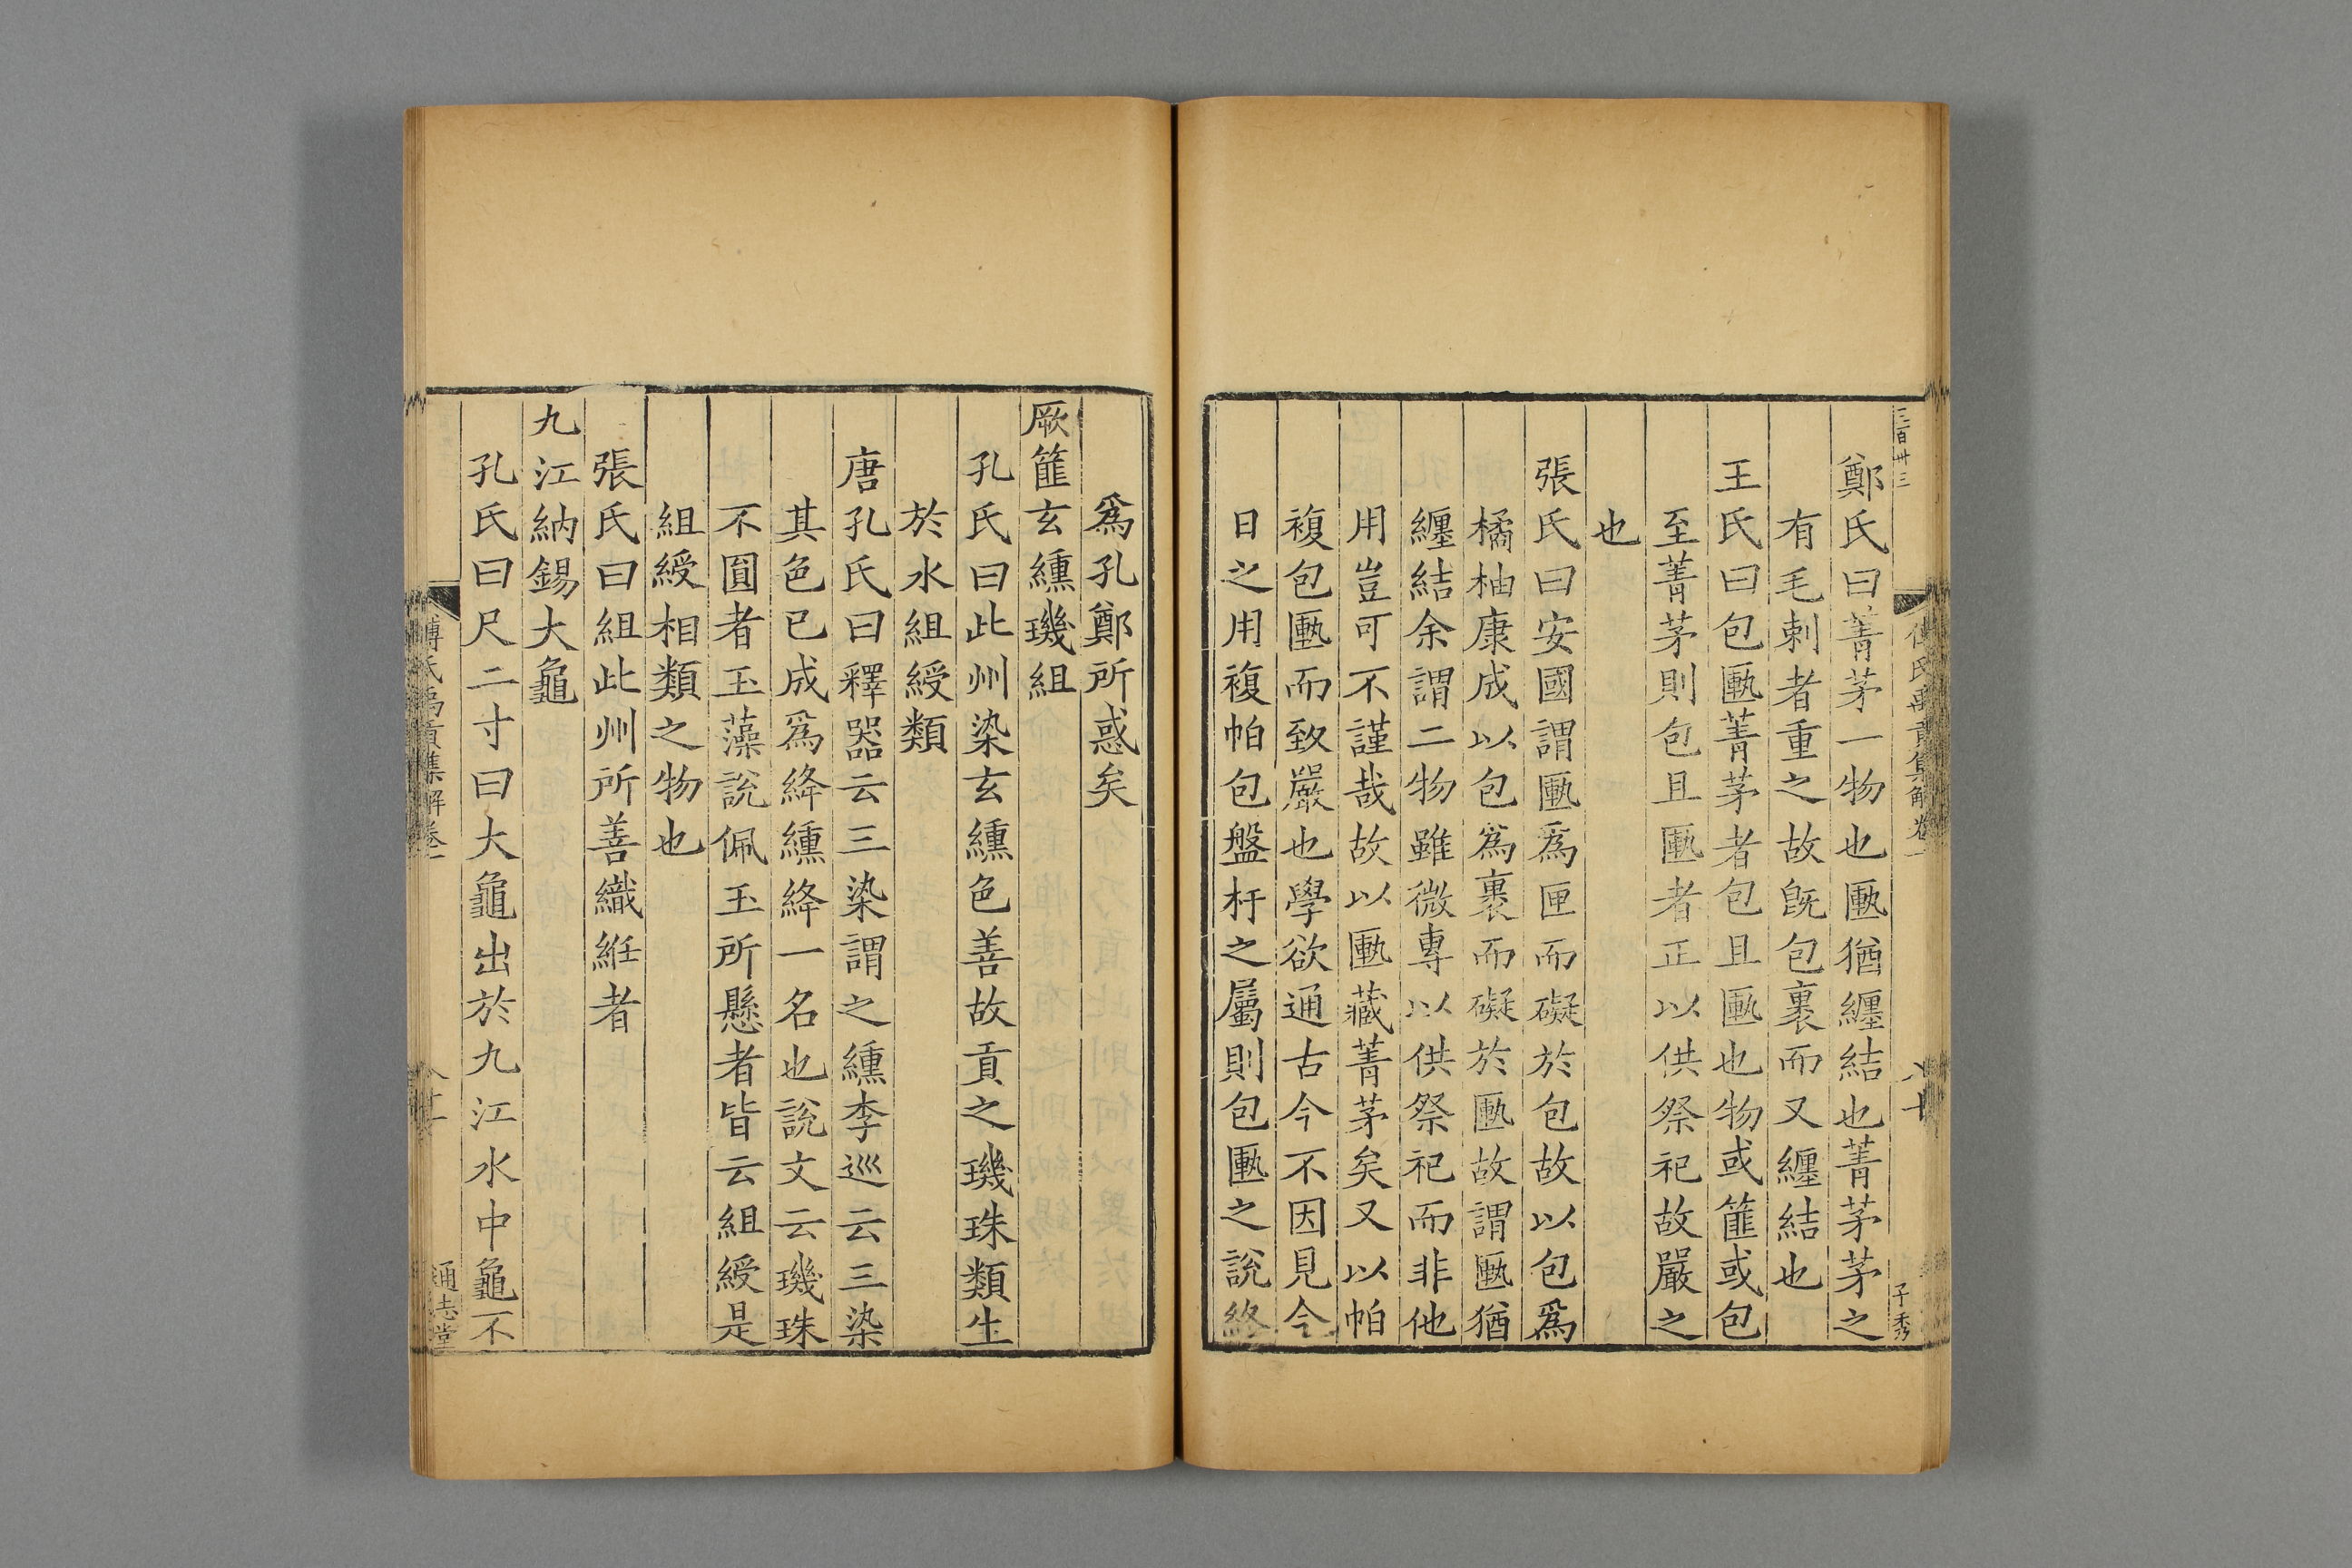 三百卅三
鄭氏曰菁茅一物也匭猶纒結也菁茅茅之
有毛刺者重之故旣包裹而又纒結也
王氏曰包匭菁茅者包且匭也物或篚或包
至菁茅則包且匭者正以供祭祀故嚴之
也
張氏曰安國謂匭爲匣而礙於包故以包爲
橘柚康成以包爲裹而礙於匭故謂匭猶
纒結余謂二物雖微專以供祭祀而非他
用豈可不謹哉故以匭藏菁茅矣又以帕
複包匭而致嚴也學欲通古今不因見今
日之用複帕包盤杅之屬則包匭之說終
子秀
爲孔鄭所惑矣
厥篚玄纁璣組
孔氏曰此州染玄纁色善故貢之璣珠類生
於水組綬類
唐孔氏曰釋器云三染謂之纁李巡云三染
其色已成爲絳纁絳一名也說文云璣珠
不圓者玉藻說佩玉所懸者皆云組綬是
組綬相類之物也
張氏曰組此州所善織紝者
九江納錫大龜
孔氏曰尺二寸曰大龜出於九江水中龜不
傅氏禹貢集解卷一
通志堂